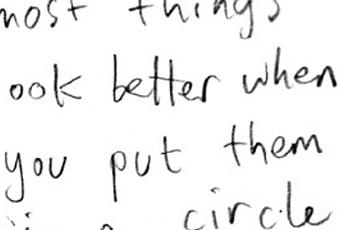 most things
ook better when
you put them
circle